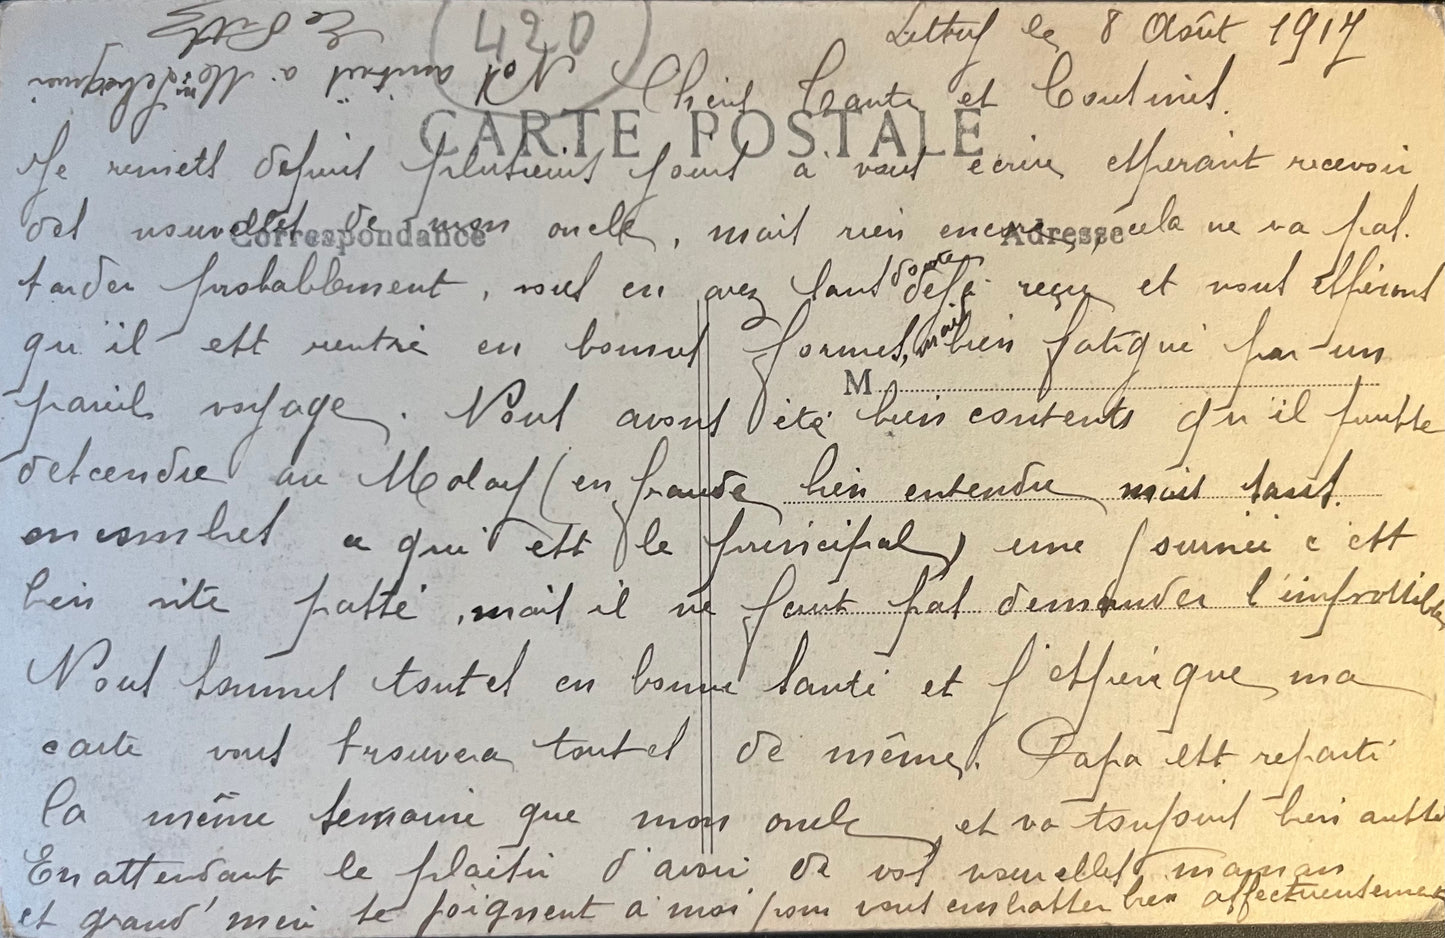 420
le 8 Août 1917
Chers Tante et Cousines.
CARTE POSTALE
Je remets depuis plusieurs jours à vous écrire, esperant recevoir
des nouvelles de mon oncle, mais rien encore, cela ne va pas
Correspondance
Adresse
tarder probablement, vous en avez sans doute déjà reçu et nous espérons
qu'il est rentré en bonnes formes, mais bien fatigué par un
M
pareil voyage. Nous avons été bien contents qu'il puisse
descendre au Molay (en fraude bien entendu mais sans
encombres ce qui est le principal) une journée c'est
bien vite passé, mais il ne faut pas demander l'impossible
Nous sommes toutes en bonne santé et j'espère que ma
carte vous trouvera toutes de même. Papa est reparti
la même semaine que mon oncle, et va toujours bien aussi
En attendant le plaisir d'avoir de vos nouvelles, maman
et grand'mère se joignent à moi pour vous embrasser bien affectueusement